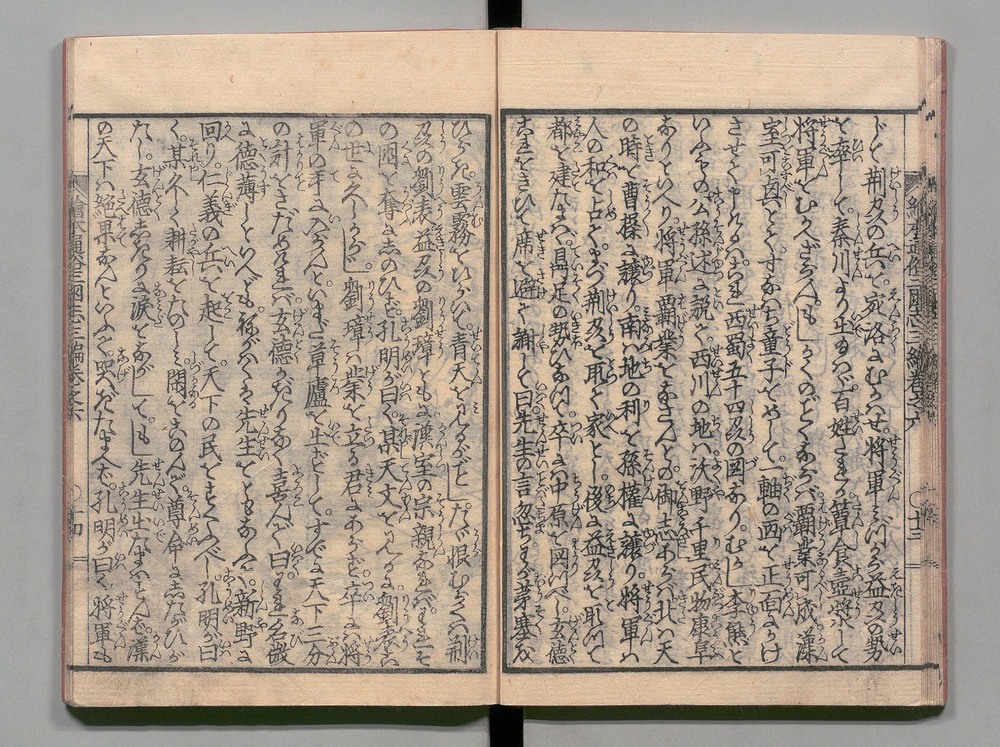 じて荊州の兵を宛洛にむかはせ。将軍ミづから益州の勢
を率して。秦川より出るならバ。百姓さま〴〵簞食壺漿して
将軍をむかへざらんや。もしかくのごとくならバ覇業可成漢
室可興とて。すなはち童子をめして。一軸の画を正面にかけ
させて。申けるハ。これ西蜀五十四州の図なり。むかし李熊と
いふもの公孫述に説て。西川の地ハ沃野千里民物康阜
なりといへり。将軍覇業をなさんとの御志あらバ。北ハ天
の時を曹操に譲り。南ハ地の利を孫権に譲り。将軍ハ
人の和を占て。まづ荊州を取て家とし。後に益州を取て
都を建なバ。鼎足の勢ひなつて。卒に中原を図べし。玄徳
これをきひて。席を避て謝して曰。先生の言忽ちに茅塞を
ひらき。雲霧をひらひて。青天をみるがごとし。たゞ恨むらくハ荊
州の劉表益州の劉璋ともに漢室の宗親なれバ。これを
の国を奪に忍のびず。孔明が曰く。某天文をみるに。劉表ハ
の世に久しからじ。劉璋ハ業を立る君にあらず。卒にハ将
軍の手に入らんと。いまだ草廬を出ずして。すでに天下三分
の計をさだめければ。玄徳かぎりなく喜んで曰。われ名微
に徳薄しといへども。ねがハくハ先生をともなふて。新野に
回り。仁義の兵を起して。天下の民をすくふべし。孔明が曰
く。某久しく耕耘をたのしミ。尊命にしたがひが
たし。玄徳しきりに涙をながして。もし先生出たまハずんバ。漢
の天下ハ絶果なんといふて。哭ミたまへバ。孔明が曰く。将軍も
繪本通俗三國志三編巻之六
十三
繪本通俗三國志三編巻之六
十四